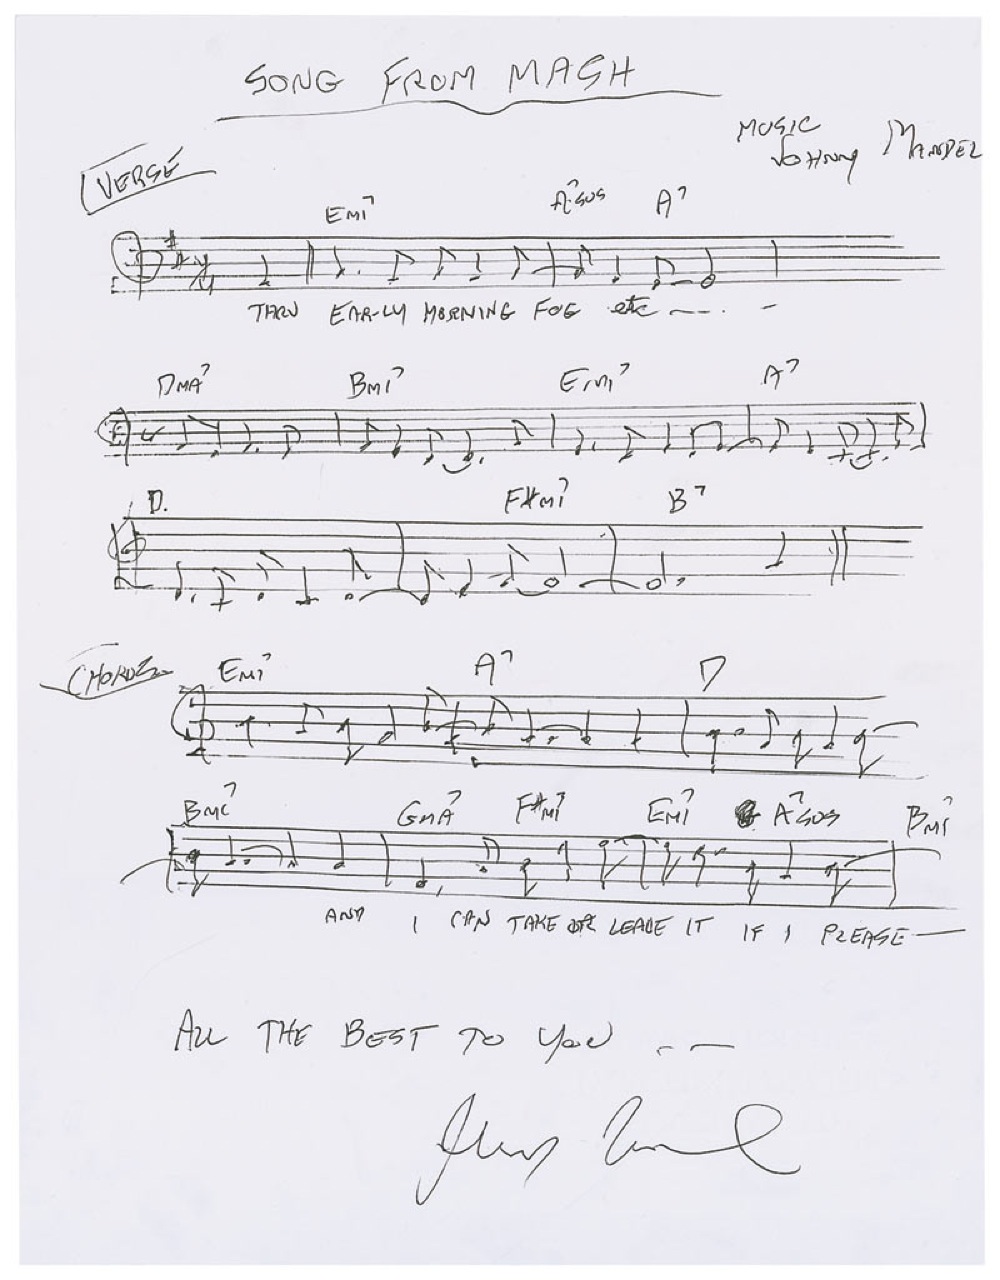 SONG FROM MASH
MUSIC
JOHNNY MANDEL
VERSE
EMI7 A7SUS A7
THRU EAR-LY MORNING FOG etc
DMA7 BMI7 EMI7 A7
D. F#MI7 B7
CHORUS
EMI7 A7 D
BMI7 GMA7 F#MI7 EMI7 A7SUS BMI7
AND I CAN TAKE OR LEAVE IT IF I PLEASE —
ALL THE BEST TO YOU - —